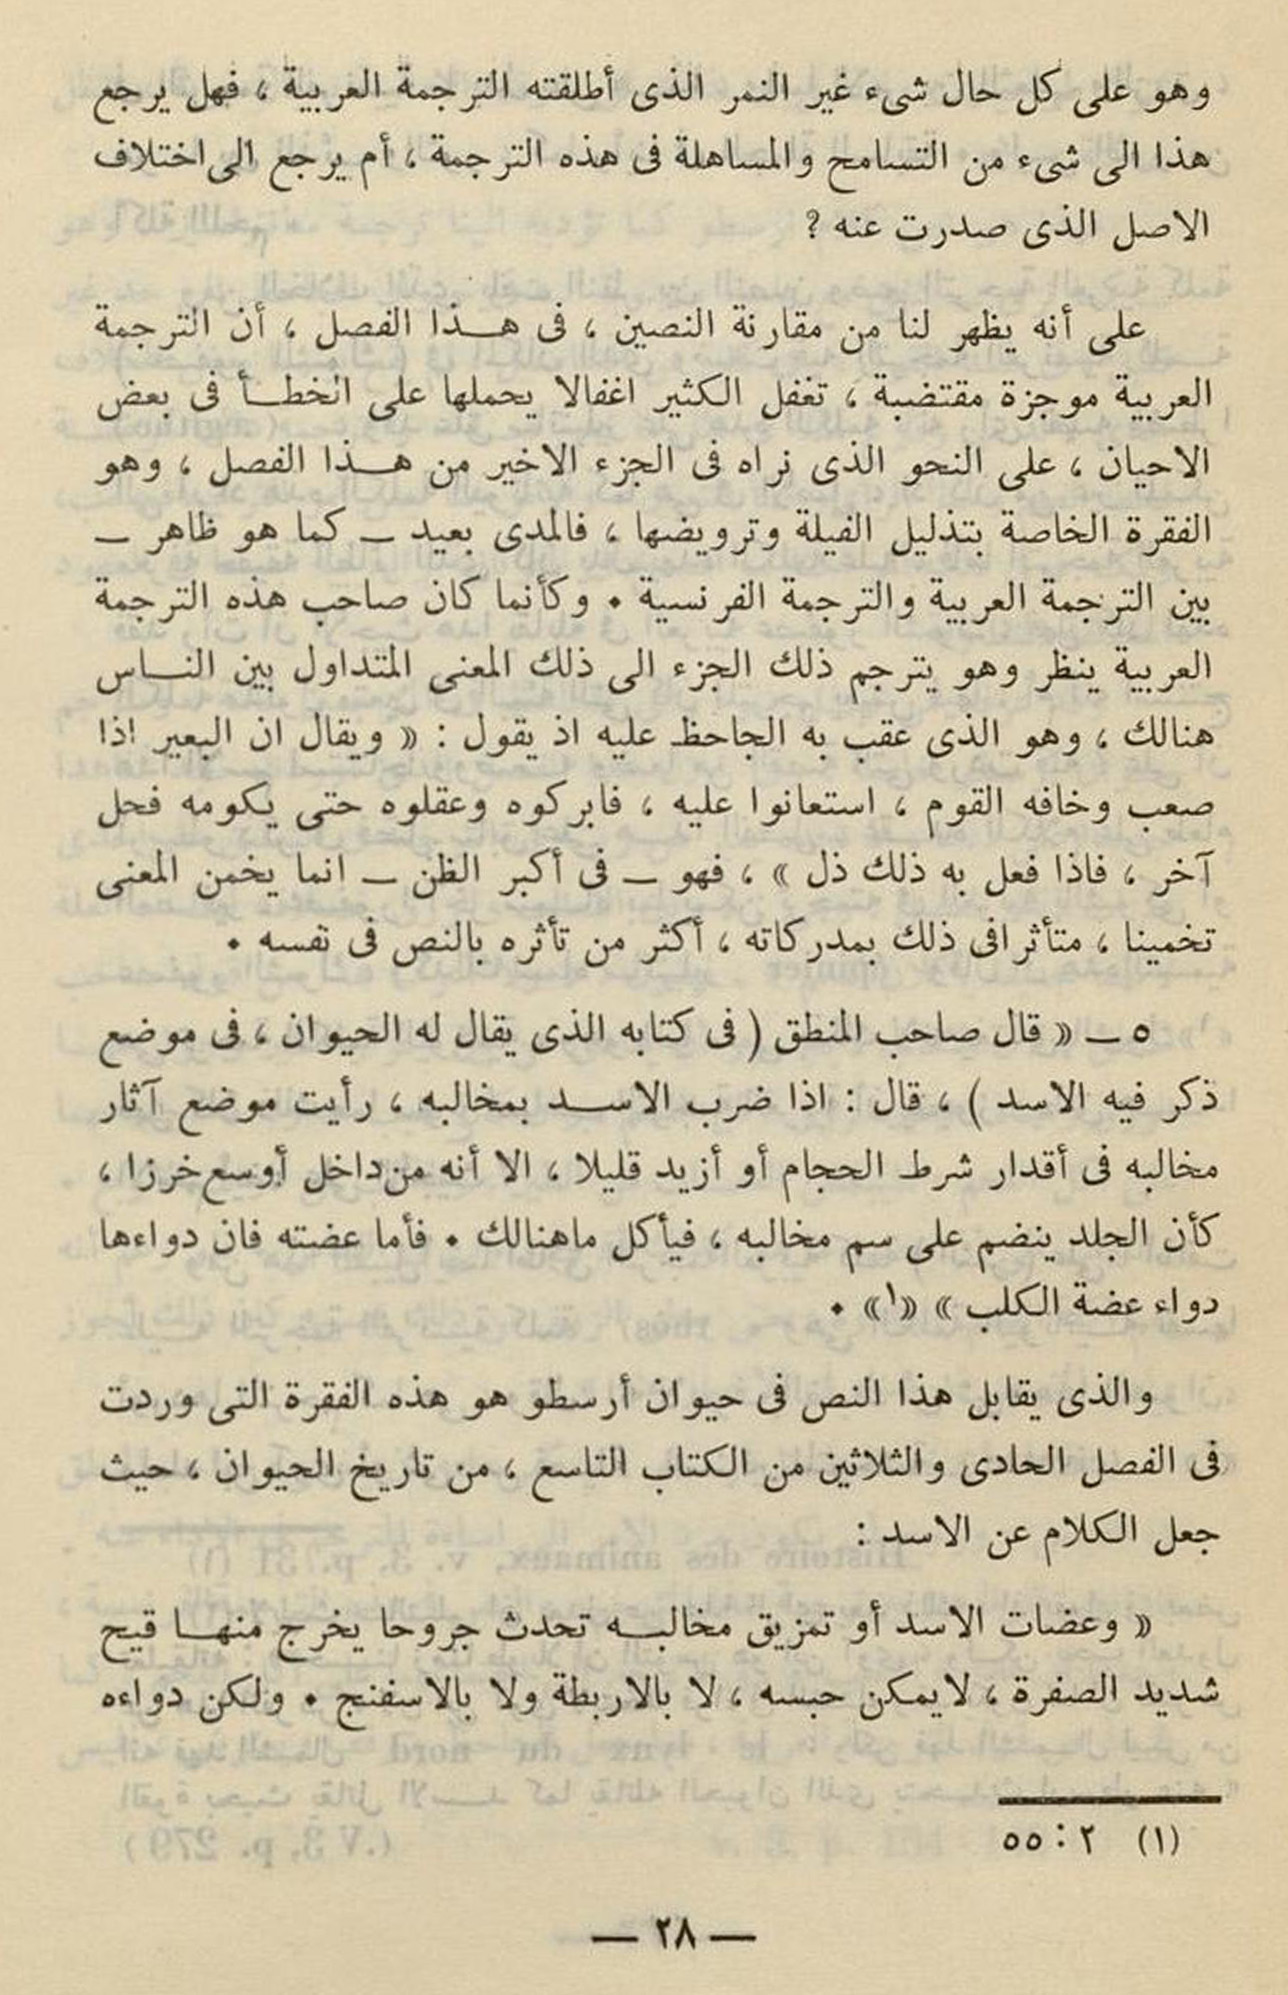 وهو على كل حال شىء غير النمر الذى أطلقته الترجمة العربية ، فهل يرجع
هذا الى شىء من التسامح والمساهلة فى هذه الترجمة ، أم يرجع الى اختلاف
الاصل الذى صدرت عنه ?
على أنه يظهر لنا من مقارنة النصين ، فى هــذا الفصل ، أن الترجمة
العربية موجزة مقتضبة ، تغفل الكثير اغفالا يحملها على الخطــأ فى بعض
الاحيان ، على النحو الذى نراه فى الجزء الاخير من هــذا الفصل ، وهو
الفقرة الخاصة بتذليل الفيلة وترويضها ، فالمدى بعيد ــ كما هو ظاهر ــ
بين الترجمة العربية والترجمة الفرنسية • وكأنما كان صاحب هذه الترجمة
العربية ينظر وهو يترجم ذلك الجزء الى ذلك المعنى المتداول بين النــاس
هنالك ، وهو الذى عقب به الجاحظ عليه اذ يقول : « ويقال ان البعير اذا
صعب وخافه القوم ، استعانوا عليه ، فابركوه وعقلوه حتى يكومه فحل
آخر ، فاذا فعل به ذلك ذل » ، فهو ــ فى أكبر الظن ــ انما يخمن المعنى
تخمينا ، متأثرا فى ذلك بمدركاته ، أكثر من تأثره بالنص فى نفسه •
٥ ــ « قال صاحب المنطق ( فى كتابه الذى يقال له الحيوان ، فى موضع
ذكر فيه الاسد ) ، قال : اذا ضرب الاســد بمخالبه ، رأيت موضع آثار
مخالبه فى أقدار شرط الحجام أو أزيد قليلا ، الا أنه من داخل أوسع خرزا ،
كأن الجلد ينضم على سم مخالبه ، فيأكل ماهنالك • فأما عضته فان دواءها
دواء عضة الكلب » «١» •
والذى يقابل هذا النص فى حيوان أرسطو هو هذه الفقرة التى وردت
فى الفصل الحادى والثلاثين من الكتاب التاسع ، من تاريخ الحيوان ، حيث
جعل الكلام عن الاسد :
« وعضات الاسد أو تمزيق مخالبــه تحدث جروحا يخرج منهــا قيح
شديد الصفرة ، لايمكن حبسه ، لا بالاربطة ولا بالاسفنج • ولكن دواءه
(١) ٢ : ٥٥
— ٢٨ —